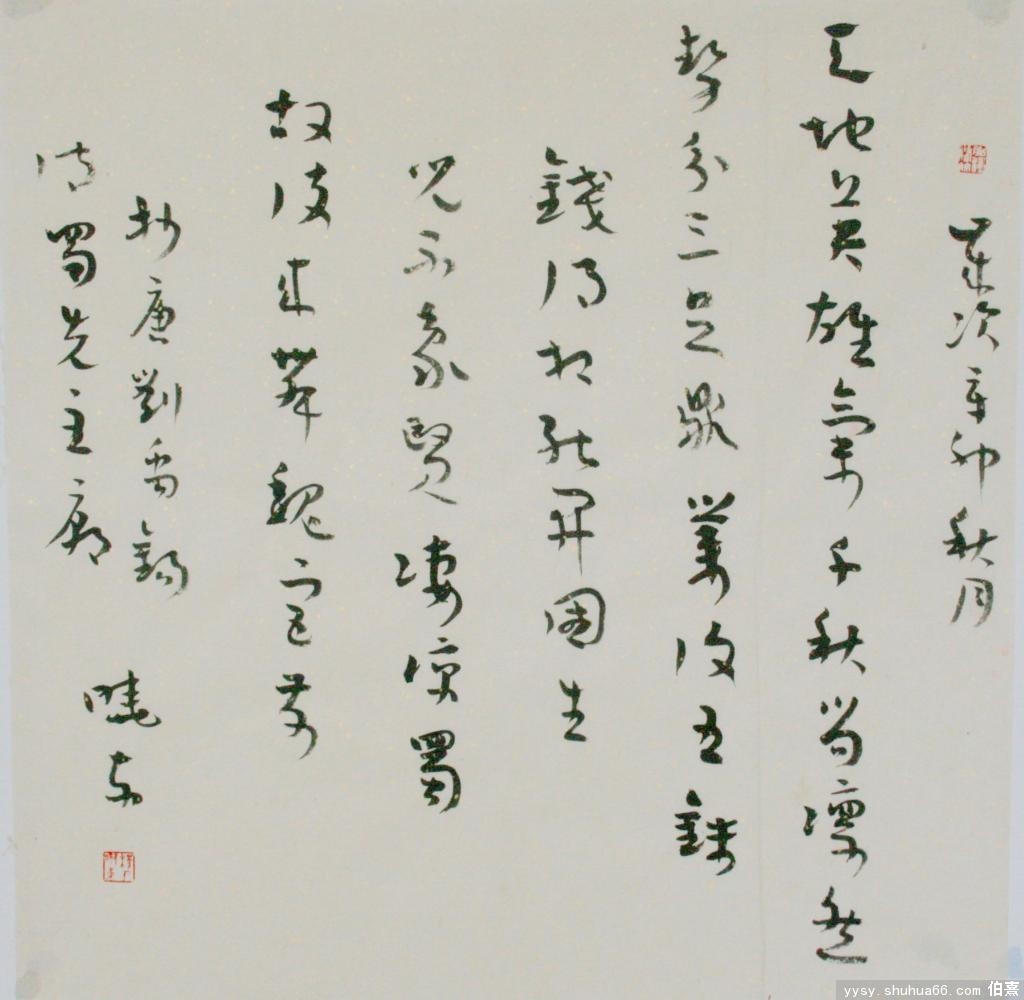 歲次辛卯秋月
天地英雄氣千秋尚凛然
勢分三足鼎業復五銖
錢得相能開國生
兒不象賢凄涼蜀
故伎來舞魏宮前
抄唐劉禹錫
詩蜀先主廟
yysy.shuhua66.com 伯熹